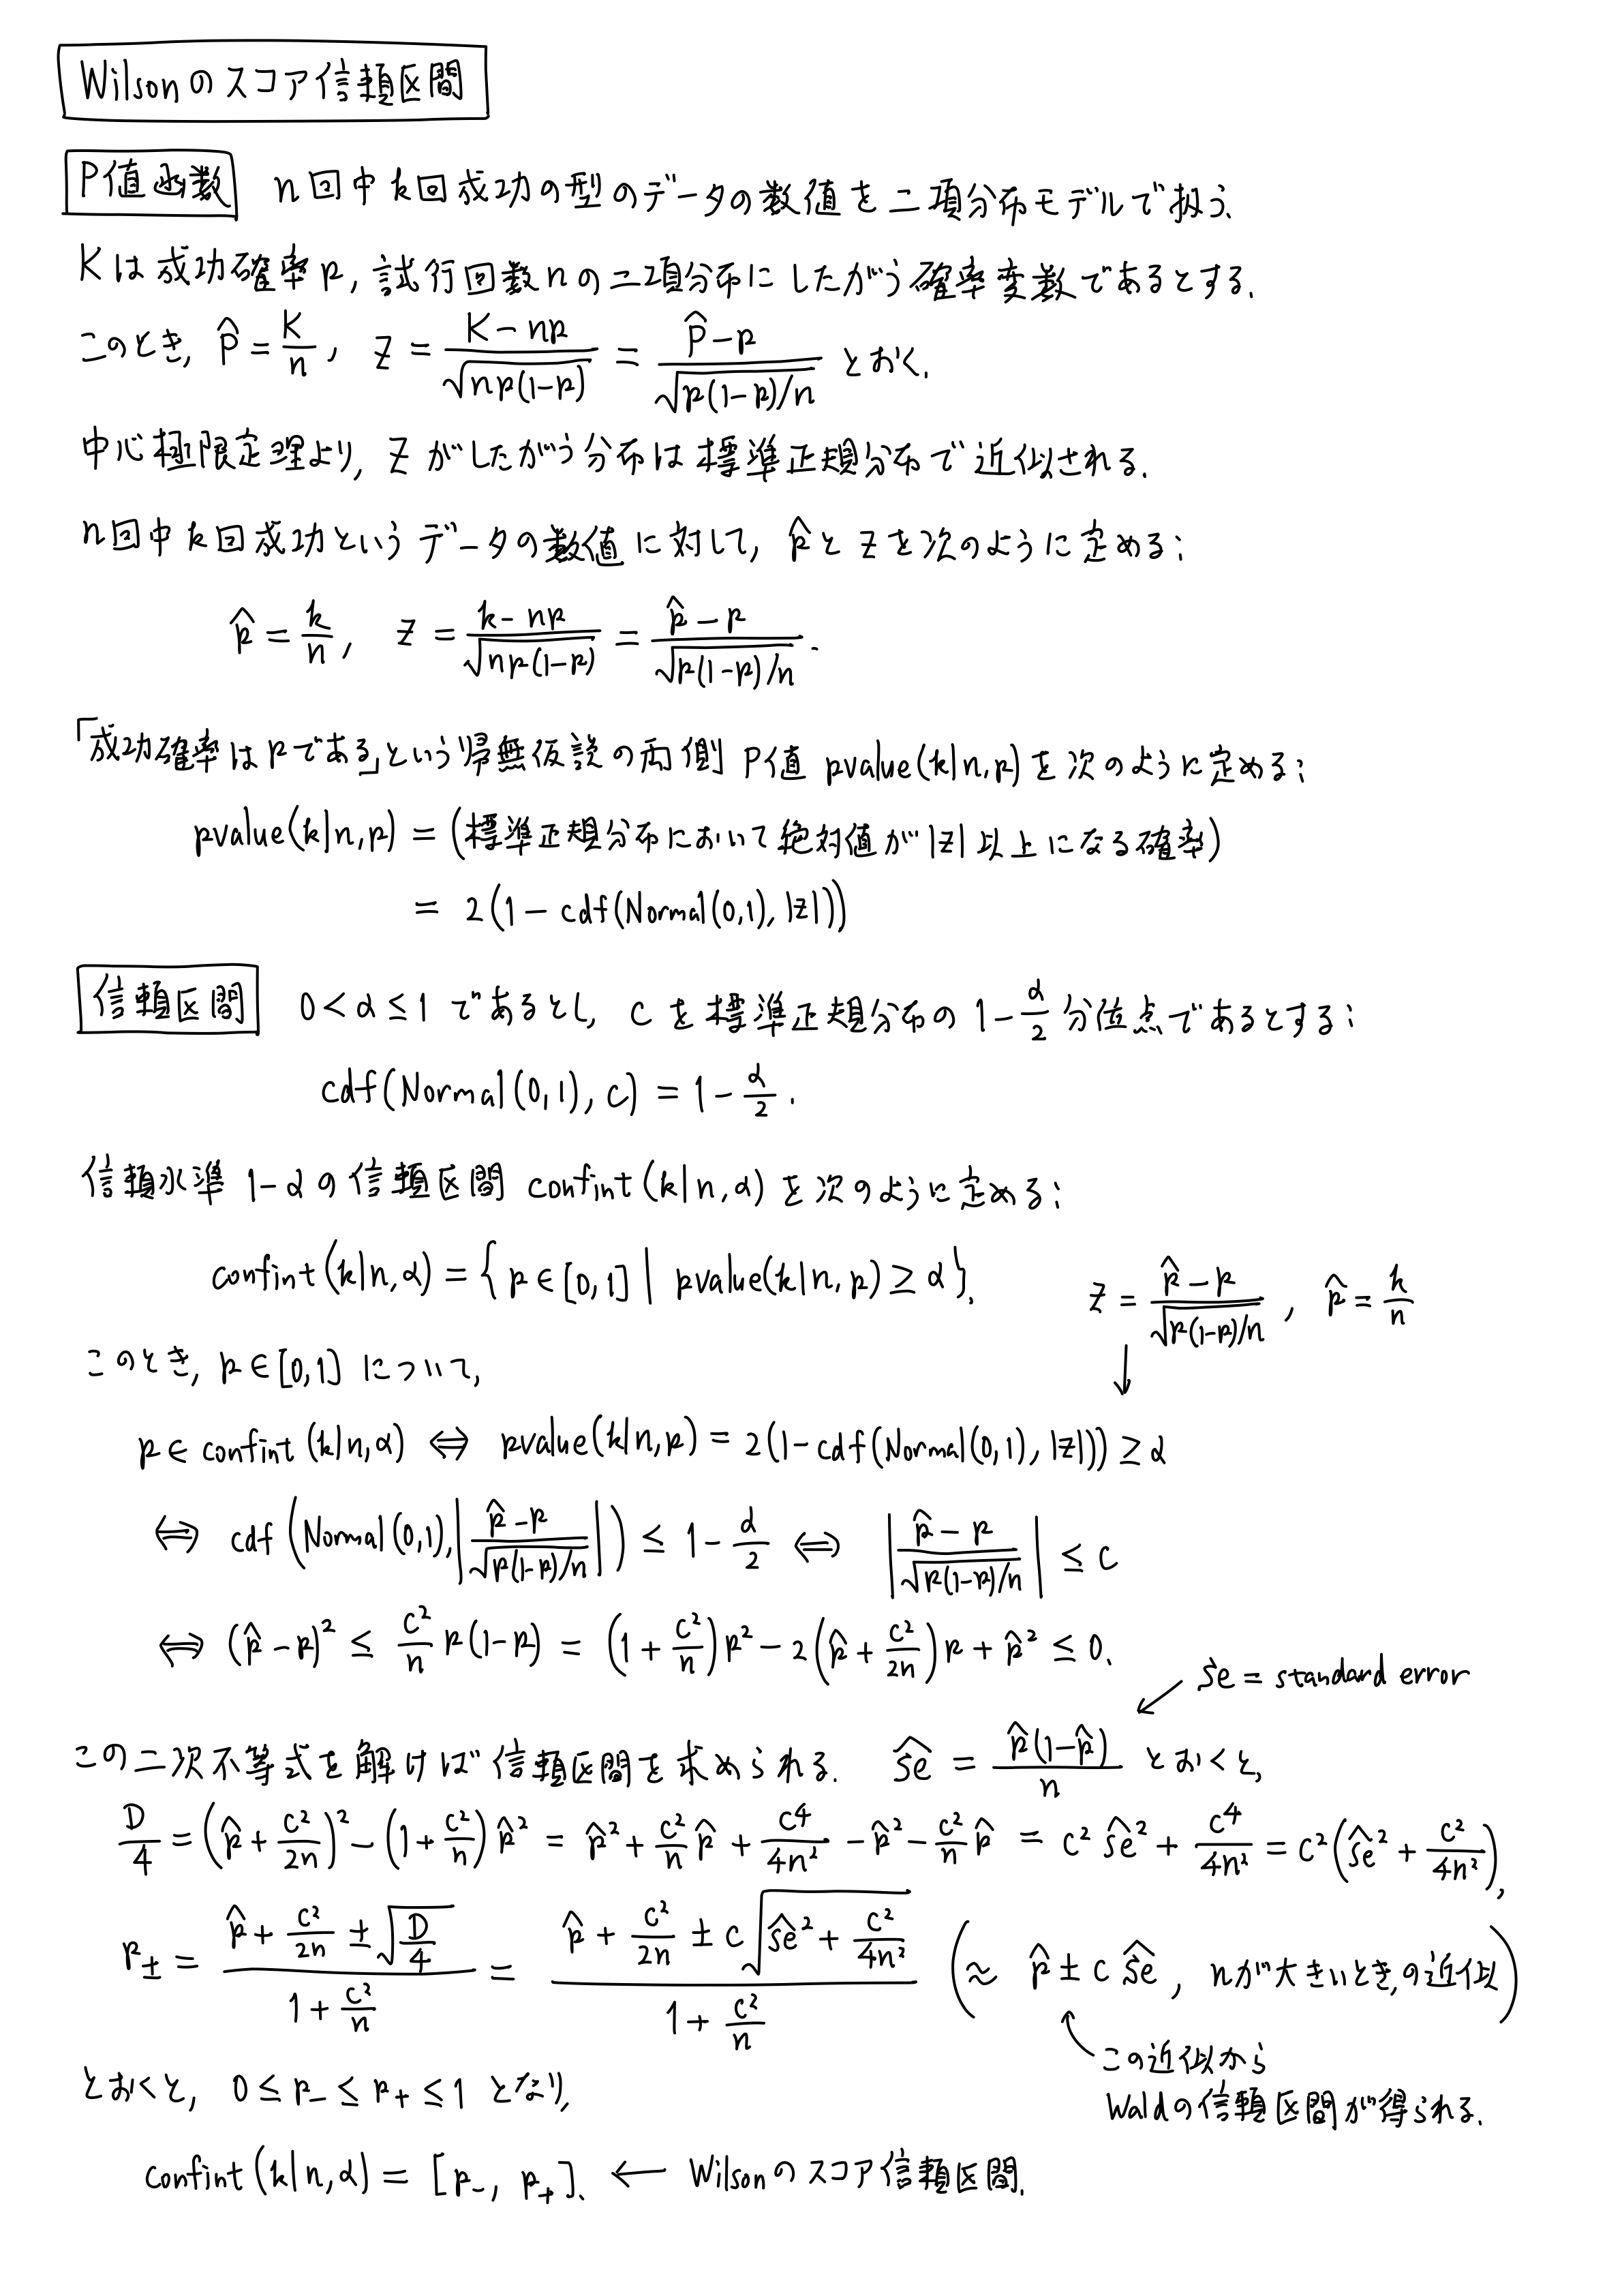 Wilsonのスコア信頼区間
P値函数 n回中k回成功の型のデータの数値を二項分布モデルで扱う.
Kは成功確率p, 試行回数nの二項分布にしたがう確率変数であるとする.
このとき, P̂ = K/n, Z = (K - np)/√(np(1-p)) = (P̂ - p)/√(p(1-p)/n) とおく.
中心極限定理より, Zがしたがう分布は標準正規分布で近似される.
n回中k回成功というデータの数値に対して, p̂とzを次のように定める:
p̂ = k/n, z = (k - np)/√(np(1-p)) = (p̂ - p)/√(p(1-p)/n).
「成功確率はpである」という帰無仮説の両側P値 pvalue(k|n,p)を次のように定める:
pvalue(k|n,p) = (標準正規分布において絶対値が|z|以上になる確率)
= 2(1 - cdf(Normal(0,1), |z|))
信頼区間 0 < α ≤ 1 であるとし, c を標準正規分布の 1 - α/2 分位点であるとする:
cdf(Normal(0,1), c) = 1 - α/2.
信頼水準 1-αの信頼区間 confint(k|n,α)を次のように定める:
confint(k|n,α) = { p ∈ [0,1] | pvalue(k|n,p) ≥ α }.
z = (p̂ - p)/√(p(1-p)/n), p̂ = k/n
↓
このとき, p ∈ [0,1] について,
p ∈ confint(k|n,α) ⇔ pvalue(k|n,p) = 2(1 - cdf(Normal(0,1), |z|)) ≥ α
⇔ cdf(Normal(0,1), |(p̂ - p)/√(p(1-p)/n)|) ≤ 1 - α/2 ⇔ |(p̂ - p)/√(p(1-p)/n)| ≤ c
⇔ (p̂ - p)² ≤ c²/n p(1-p) = (1 + c²/n)p² - 2(p̂ + c²/2n)p + p̂² ≤ 0.
↙ se = standard error
この二次不等式を解けば信頼区間を求められる. ŝe = p̂(1-p̂)/n とおくと,
D/4 = (p̂ + c²/2n)² - (1 + c²/n)p̂² = p̂² + c²/n p̂ + c⁴/4n² - p̂² - c²/n p̂ = c² ŝe² + c⁴/4n² = c²(ŝe² + c²/4n²),
p± = (p̂ + c²/2n ± √(D/4))/(1 + c²/n) = (p̂ + c²/2n ± c√(ŝe² + c²/4n²))/(1 + c²/n) (≈ p̂ ± c ŝe, nが大きいとき,の近似)
この近似から
Waldの信頼区間が得られる.
とおくと, 0 ≤ p₋ ≤ p₊ ≤ 1 となり,
confint(k|n,α) = [p₋, p₊]. ← Wilsonのスコア信頼区間.